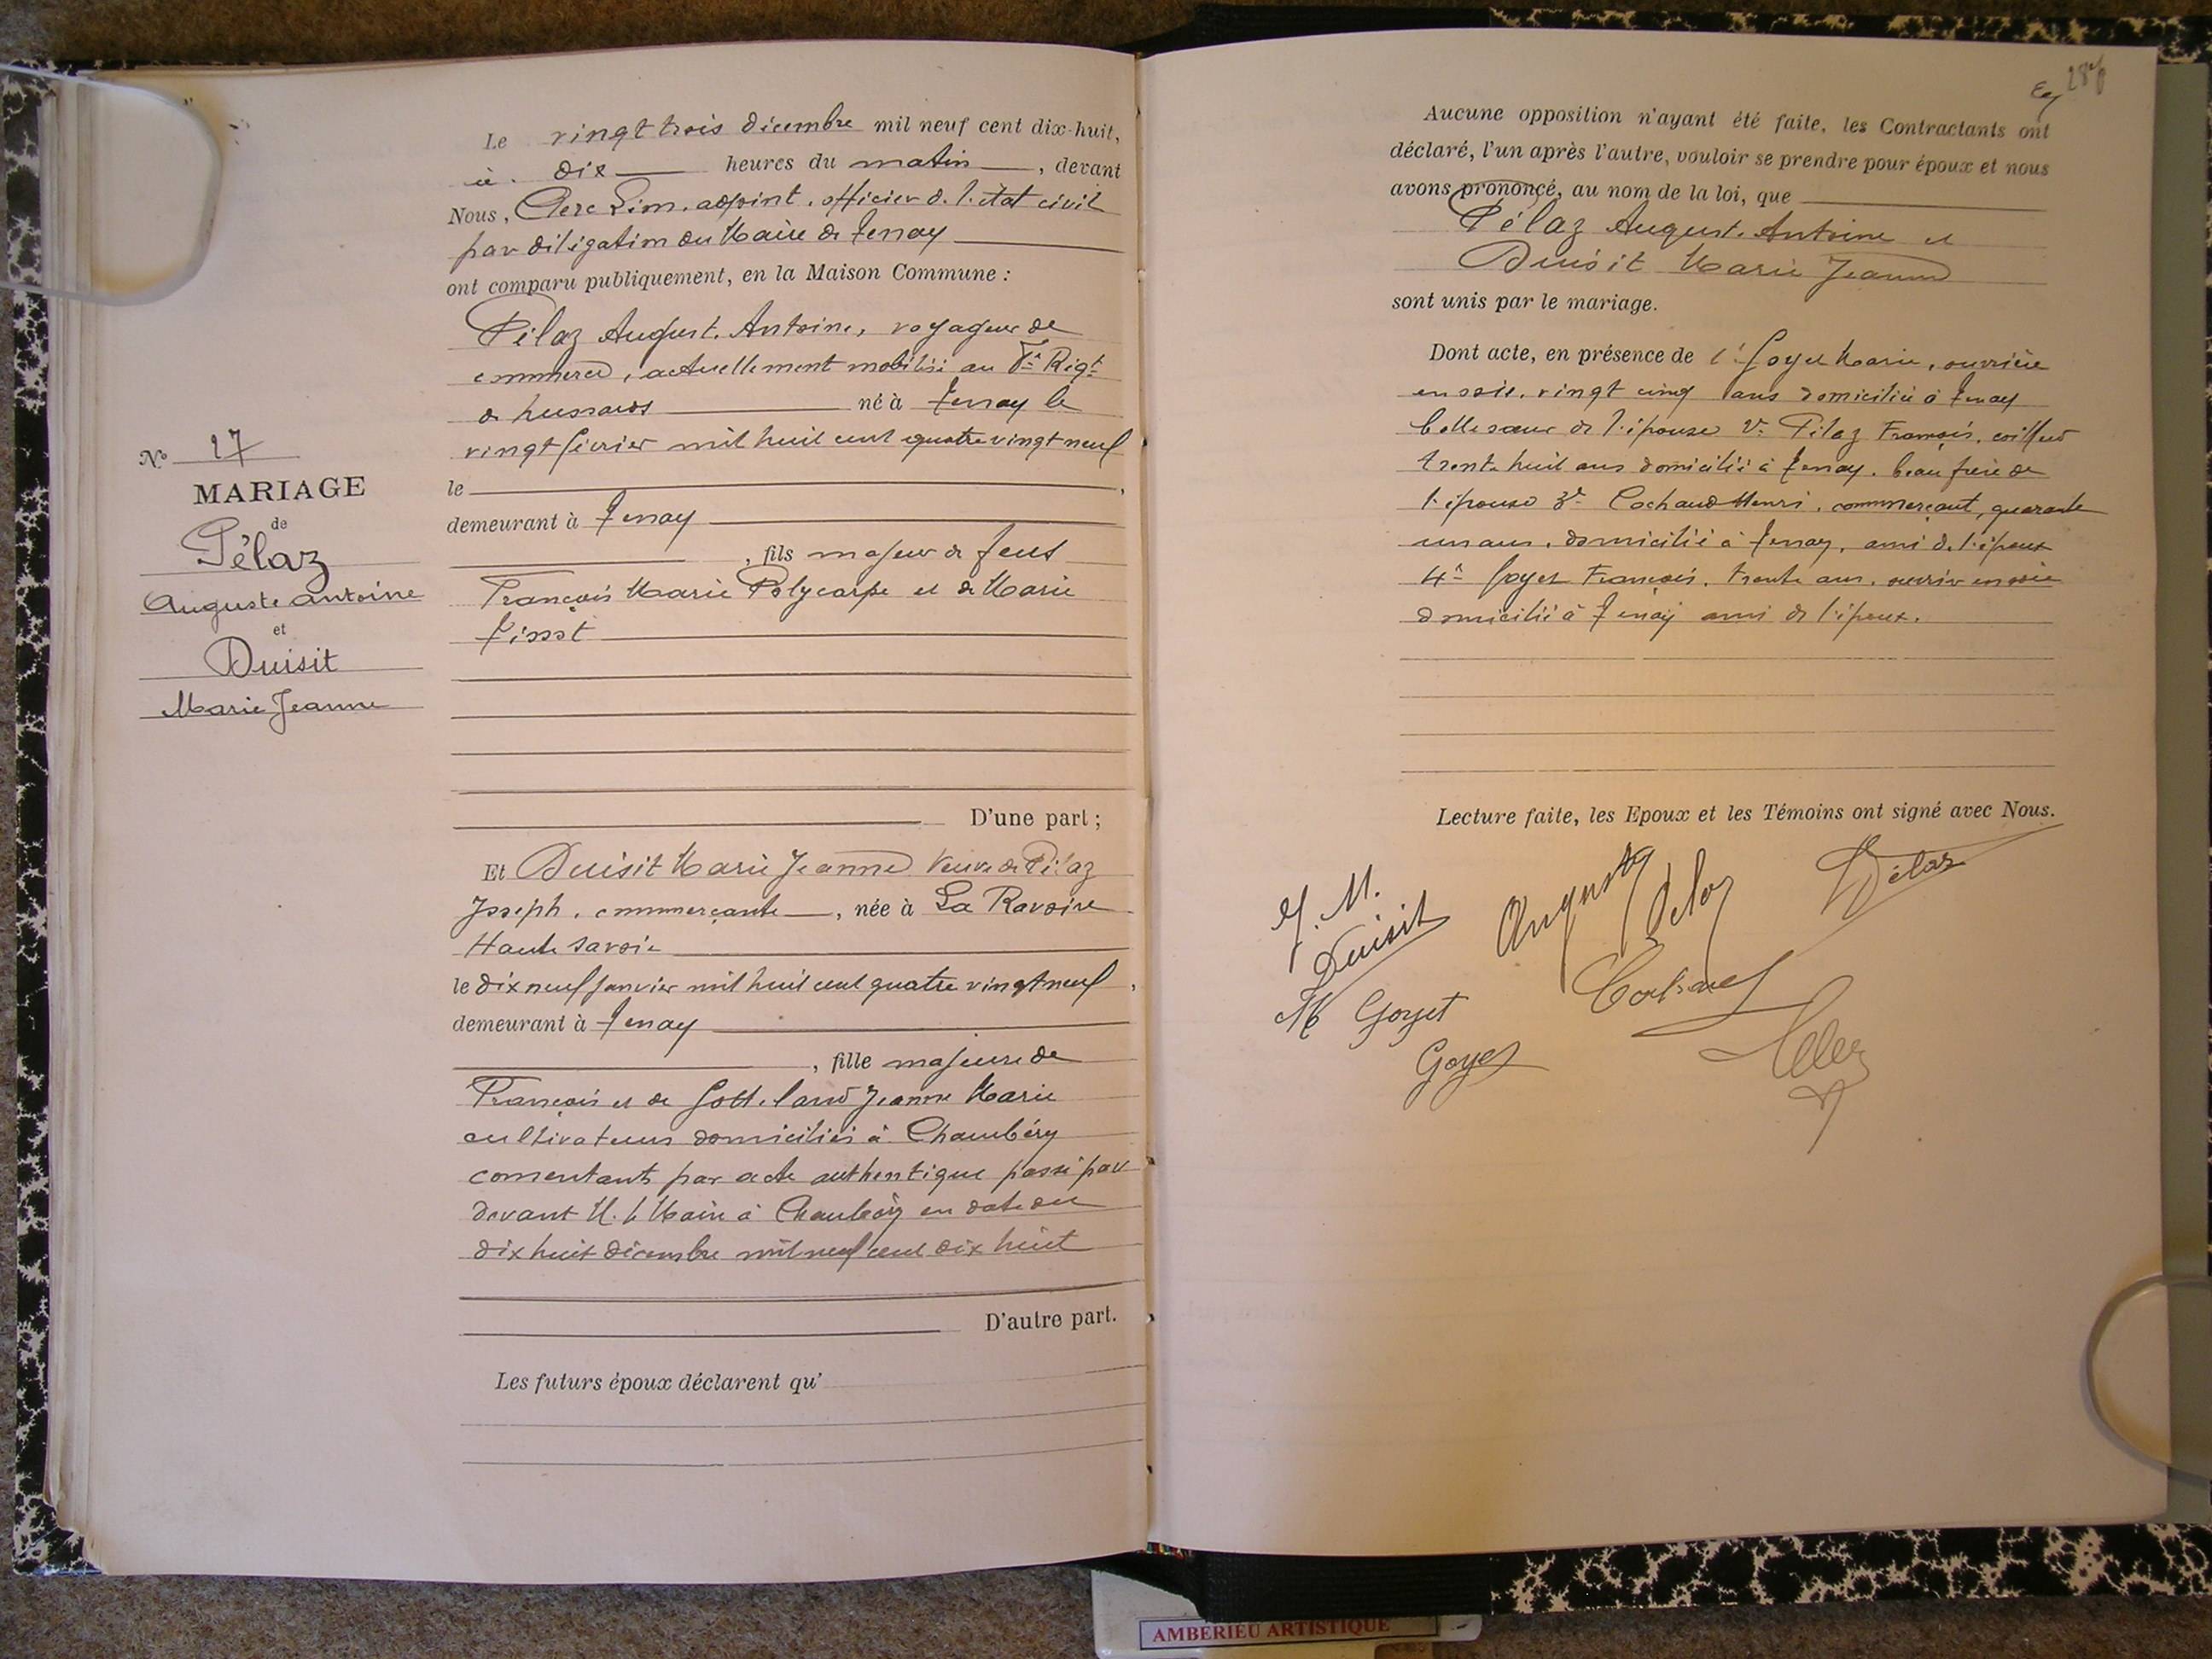 Le vingt trois décembre mil neuf cent dix-huit,
à dix heures du matin, devant
Nous, adjoint, officier de l'état civil
par délégation du Maire de Tenay
ont comparu publiquement, en la Maison Commune :
Pélaz Auguste Antoine, voyageur de
commerce, actuellement mobilisé au Régt
de hussards né à Tenay le
vingt février mil huit cent quatre vingt neuf
le
demeurant à Tenay
, fils majeur de feus
François Marie Polycarpe et de Marie
D'une part ;
N° 27
MARIAGE
de
Pélaz
Auguste Antoine
et
Duisit
Marie Jeanne
Et Duisit Marie Jeanne Veuve de Pélaz
Joseph, commerçante, née à La Ravoire
Haute Savoie
le dix neuf janvier mil huit cent quatre vingt neuf,
demeurant à Tenay
, fille majeure de
François et de Gotteland Jeanne Marie
cultivateurs domiciliés à Chambéry
consentants par acte authentique passé par
devant M. le Maire à Chambéry en date du
dix huit décembre mil neuf cent dix huit
D'autre part.
Les futurs époux déclarent qu'
28
Aucune opposition n'ayant été faite, les Contractants ont
déclaré, l'un après l'autre, vouloir se prendre pour époux et nous
avons prononcé, au nom de la loi, que
Pélaz Auguste Antoine et
Duisit Marie Jeanne
sont unis par le mariage.
Dont acte, en présence de 1° Goyet Marie, ouvrière
en soie, vingt cinq ans domiciliée à Tenay
belle sœur de l'épouse 2° Pélaz François, coiffeur
trente huit ans domicilié à Tenay, beau frère de
l'épouse 3° Cochand Henri, commerçant, quarante
un ans, domicilié à Tenay, ami de l'époux
4° Goyet François, trente ans, ouvrier en soie
domicilié à Tenay ami de l'époux.
Lecture faite, les Epoux et les Témoins ont signé avec Nous.
J. M.
Duisit
Auguste
Pélaz
Pélaz
M Goyet
Goyet
AMBERIEU ARTISTIQUE